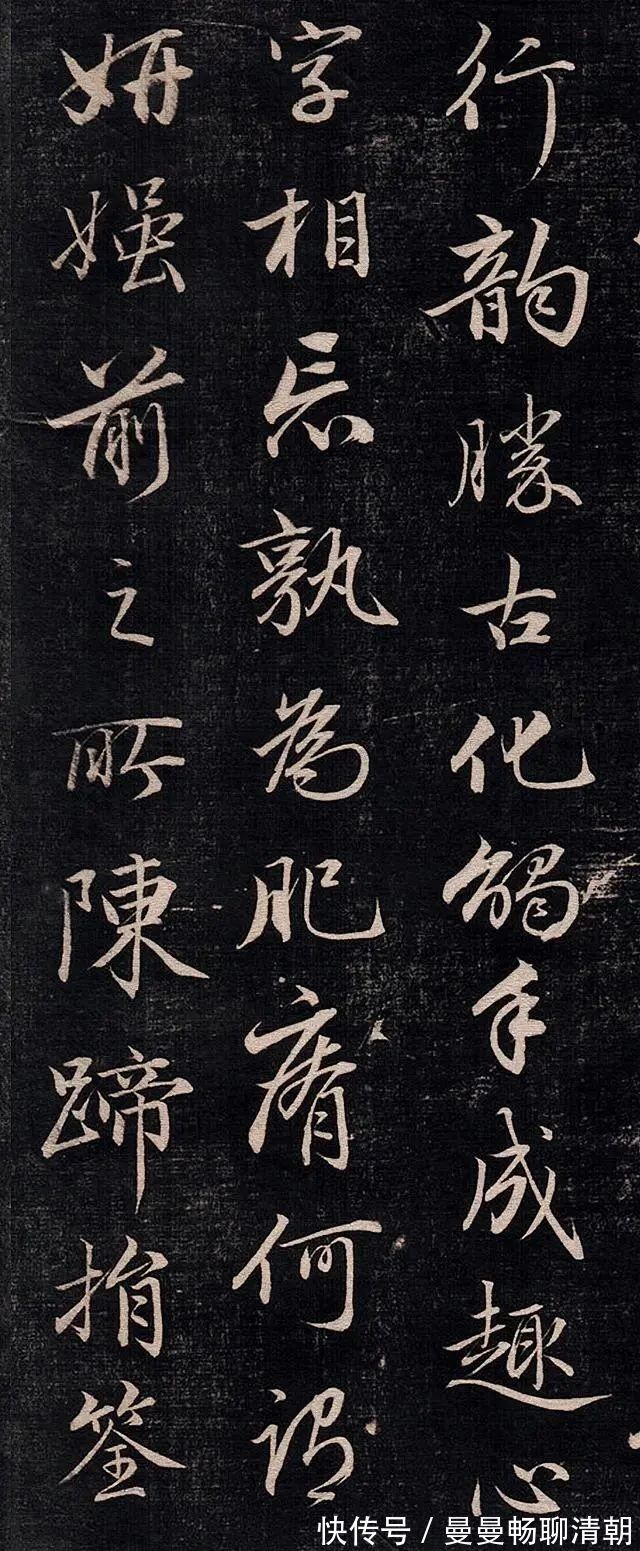 行韵勝古化觸手成趣心
字相忘孰為肥瘠何謂
妍媸前之所陳蹄捐筌
快传号 / 曼曼畅聊清朝